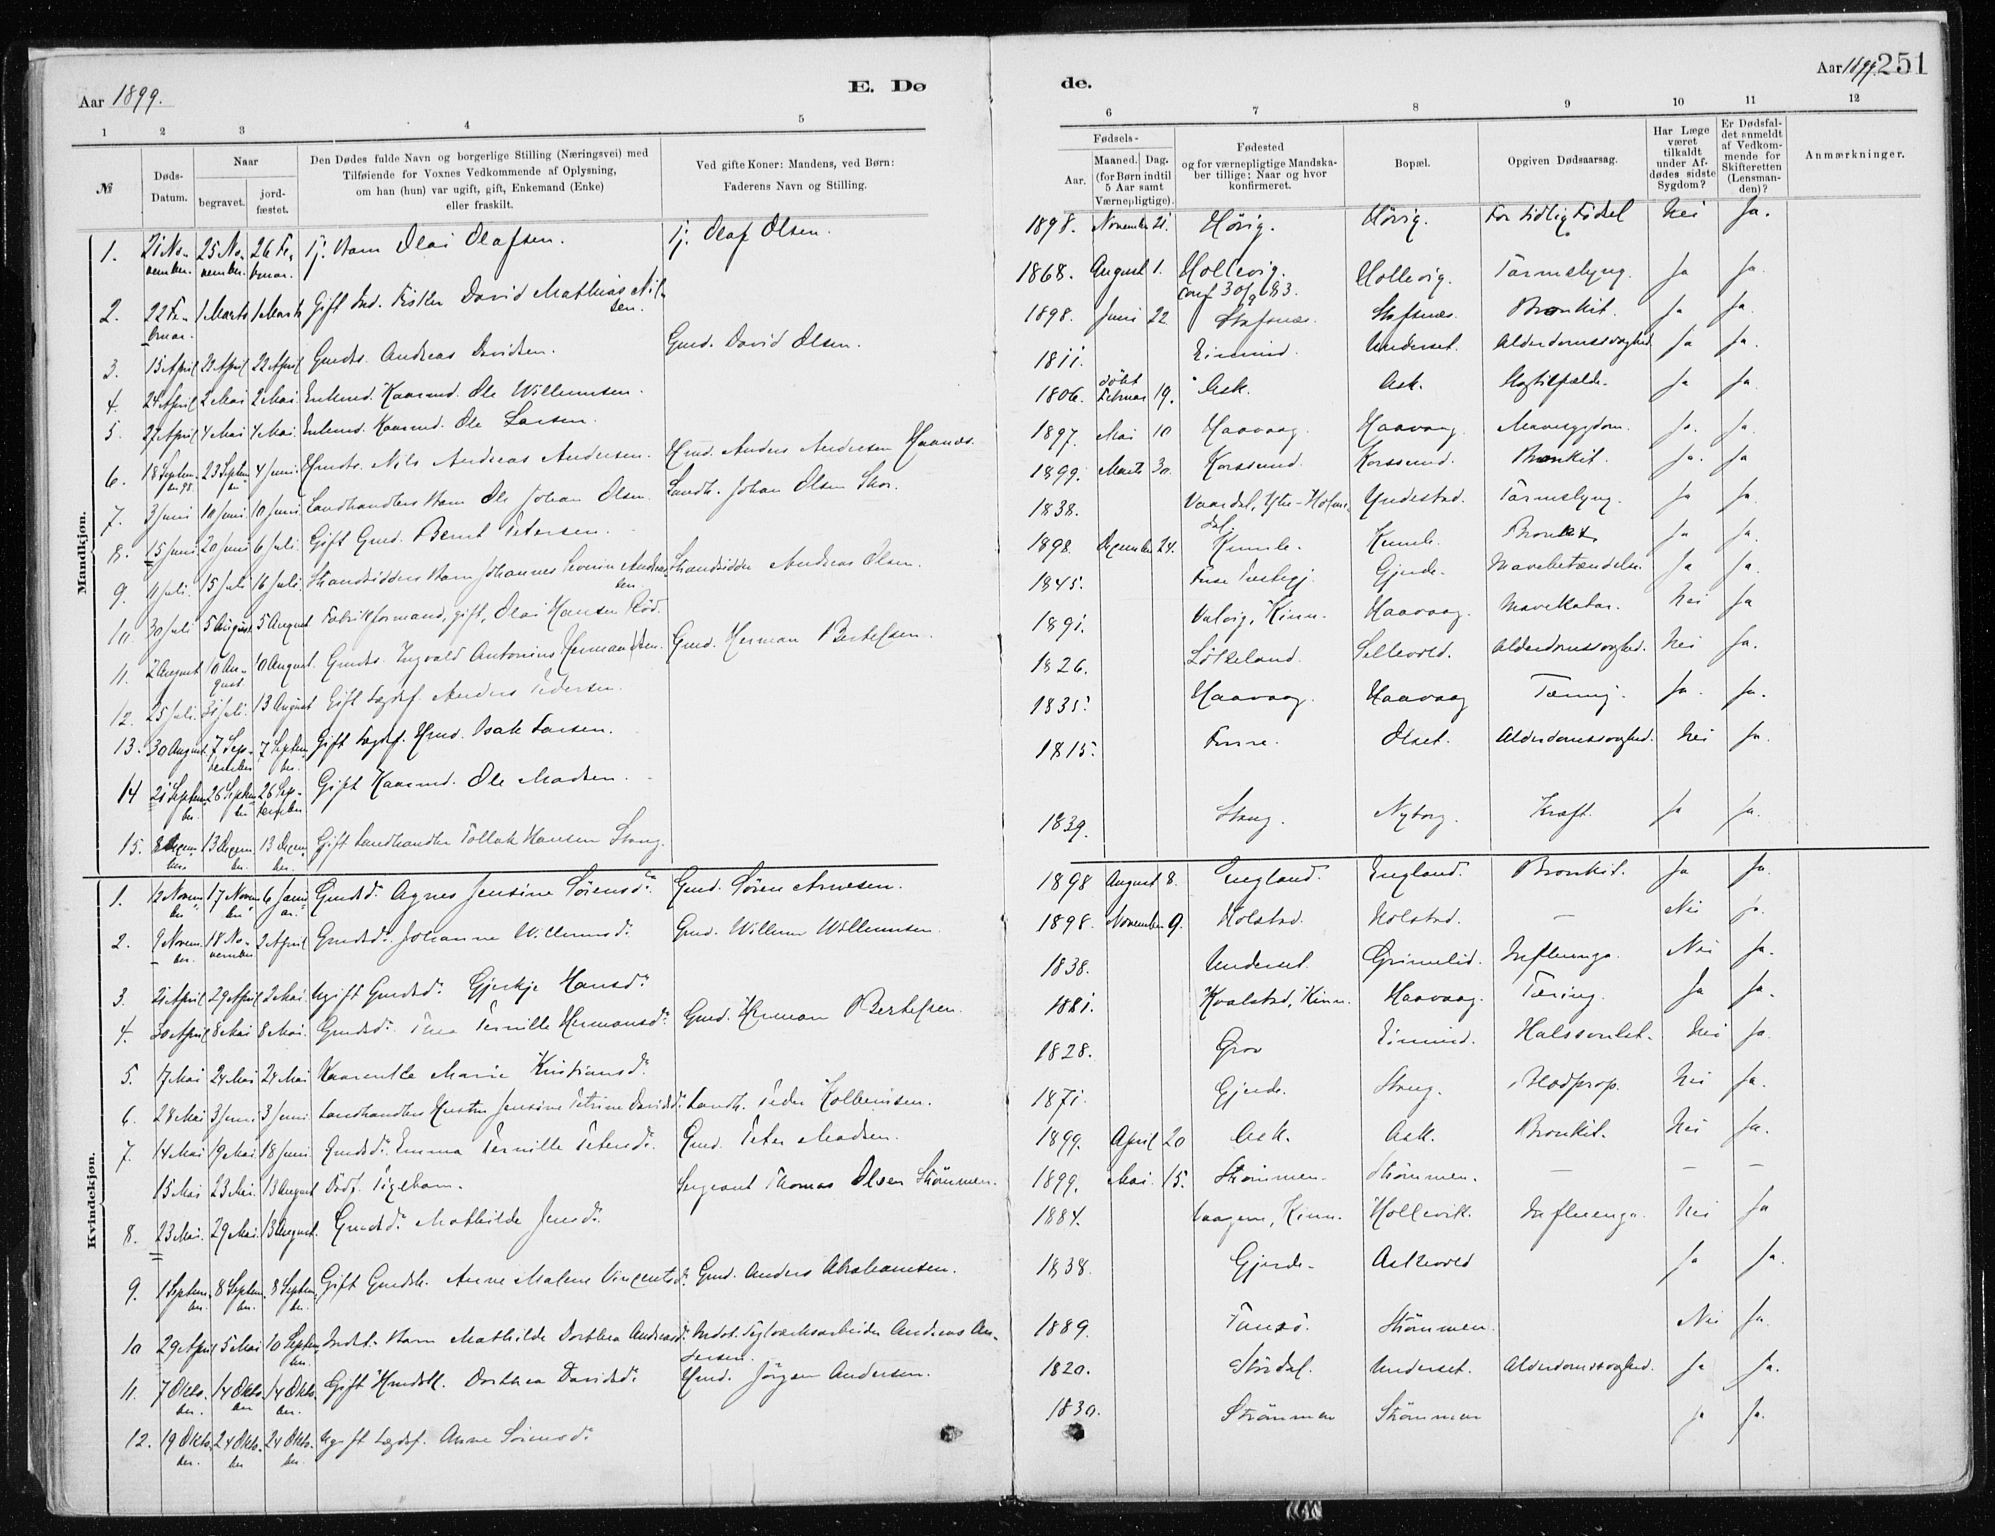 Aar 1899.
E. Dø
de.
Aar 1899. 251
1 2 3 4 5 6 7 8 9 10 11 12
№
Døds-Datum.
Naar
begravet.
jordfæstet.
Den Dødes fulde Navn og borgerlige Stilling (Næringsvei) med
Tilføiende for Voxnes Vedkommende af Oplysning,
om han (hun) var ugift, gift, Enkemand (Enke)
eller fraskilt.
Ved gifte Koner: Mandens, ved Børn:
Faderens Navn og Stilling.
Fødsels-
Aar.
Maaned. Dag.
(for Børn indtil
5 Aar samt
Værnepligtige).
Fødested
og for værnepligtige Mandska-
ber tillige: Naar og hvor
konfirmeret.
Bopæl.
Opgiven Dødsaarsag.
Har Læge
været
tilkaldt
under Af-
dødes sidste
Sygdom?
Er Dødsfal-
det anmeldt
af Vedkom-
mende for
Skifteretten
(Lensman-
den)?
Anmærkninger.
Mandkjøn.
1. 21 November. 25 November. 26 Februar. Tj. Barn Olai Olafsen. Tj. Olaf Olsen. 1898. November 21. Hövig. Hövig. For tidlig Födsel Nei Ja.
2. 22 Februar. 1 Marts 1 Marts Gift Ind. Fisker David Mathias Nilsen. 1868. August 1. Hollevig. conf 30/9 83. Hollevig. Tarmslyng. Ja Ja.
3. 15 April 22 April Gmds. Andreas Davidsen. Gmd. David Olsen. 1898. Juni 22. Stafsnæs. Stafsnæs. Bronkit. Ja Ja.
4. 24 April 2 Mai 2 Mai. Enkemd. Kaarmd. Ole Willumsen. 1811. Eimind. Underset. Alderdomssvaghed Ja Ja.
5. 27 April 4 Mai 4 Mai. Enkemd. Kaarmd. Ole Larsen. 1806. döbt Februar 19. Ask. Ask. Ja Ja.
6. 18 September 98. 23 September 4 Juni. Hmds. Nils Andreas Andersen. Hmd. Anders Andersen Haanæs. 1897. Mai 10 Haavaag. Haavaag. Mavesygdom. Ja. Ja.
7. 3 Juni 10 Juni 10 Juni Landhandlers Barn Ole Johan Olsen. Landh. Johan Olsen Skor. 1899. Marts 30. Korssund. Korssund. Bronkit. Ja. Ja
8. 15 Juni 20 Juni 6 Juli. Gift Gmd. Bernt Petersen. 1838. Vaardal, Ytre-Holmedal. Yndestad. Tarmslyng. Ja Ja
9. 11 Juli. 15 Juli 16 Juli. Strandsidders Barn Johannes Severin Andreassen Strandsidder Andreas Olsen. 1898. December 24. Kumle. Kumle. Bronkit Ja Ja.
10. 30 Juli 5 August. 5 August Fabrikformand, gift, Olai Hansen Röd. 1845. Gjerde. Mavebetændelse. Ja Ja.
11. 2 August 10 August. 10 August. Gmds. Ingvald Antonius Hermandsen. Gmd. Herman Bertelsen. 1891. Valvig, Kinn. Haavaag. Mavekatar. Nei Ja
12. 25 Juli. 31 Juli. 13 August Gift Lægdsf. Anders Pedersen. 1826. Lökkeland. Sellevold. Alderdomssvaghed. Nei Ja.
13. 30 August. 7 September 7 September. Gift Lægdsf. Hmd. Isak Larsen. 1835. Haavaag. Haavaag Tæring. Ja. Ja.
14 21 September. 26 September 26 September Gift Kaarmd. Ole Madsen. 1815. Furre. Olset. Alderdomssvaghed. Nei Ja.
15. 8 December. 13 December. 13 December. Gift Landhandler Tollak Hansen Stang. 1839. Stang. Nyborg. Kræft. Ja Ja.
Kvindekjøn.
1. 12 November 17 November 6 Januar. Gmdsd. Agnes Jensine Sörensd. Gmd. Sören Arnesen. 1898 August 8. Engeland. Engeland. Bronkit. Ja Ja.
2. 9 November. 18 November 2 April Gmdsd. Johanne Willumsd. Gmd. Willum Willumsen. 1898. November 9. Holstad. Holstad. — Nei Ja.
3. 21 April 29 April 2 Mai. Ugift Gmdsd. Gjertje Hansd. 1838. Underset. Grimelid. Influenza. Nei Ja.
4. 30 April 8 Mai 8 Mai. Gmdsd. Pernille Hermansd. Gmd. Herman Bertelsen. 1881. Kvalstad, Kinn. Haavaag. Tæring. Ja Ja.
5. 17 Mai 24 Mai 24 Mai Kaarenke Marie Kristiansd. 1828. Grov Eimind. Halssvulst. Nei Ja.
6. 28 Mai 3 Juni 3 Juni Landhandlers Hustru Jensine Petrine Davidsd. Landh. Peder Kolbeinsen. 1871. Gjerde. Stang. Blodprop. Nei Ja.
7. 14 Mai 19 Mai 18 Juni Gmdsd. Emma Pernille Petersd. Gmd. Peter Madsen. 1899. April 20 Ask. Ask. Bronkit. Nei Ja.
15 Mai 23 Mai. 13 August Dödf. Pigebarn. Sergeant Thomas Olsen Strömmen. 1899. Mai. 15. Strömmen. Strömmen. — — —
8. 23 Mai. 29 Mai. 13 August. Gmdsd. Mathilde Jensd. 1884. Kinn. Hollevik. Influenza. Nei Ja
9. 1 September. 8 September. 8 September. Gift Gmdsk. Anne Malene Vincentsd. Gmd. Anders Abrahamsen. 1838. Gjerde. Askevold Ja Ja.
10 29 April 5 Mai 10 September. Indst. Barn Mathilde Dorthea Andreasd. Indst. Teglværksarbeider Andreas Andersen. 1889. Fansö. Strömmen. Nei Ja.
11. 7 Oktober. 14 Oktober 14 Oktober. Gift Hmdsk. Dorthea Davidsd. Hmd. Jörgen Andersen. 1820. Stordal. Underset. Alderdomssvaghed. Ja Ja.
12. 19 Oktober. 24 Oktober 24 Oktober. Ugift Lægdsf. Anne Sörensd. 1830. Strömmen Strömmen Ja Ja.